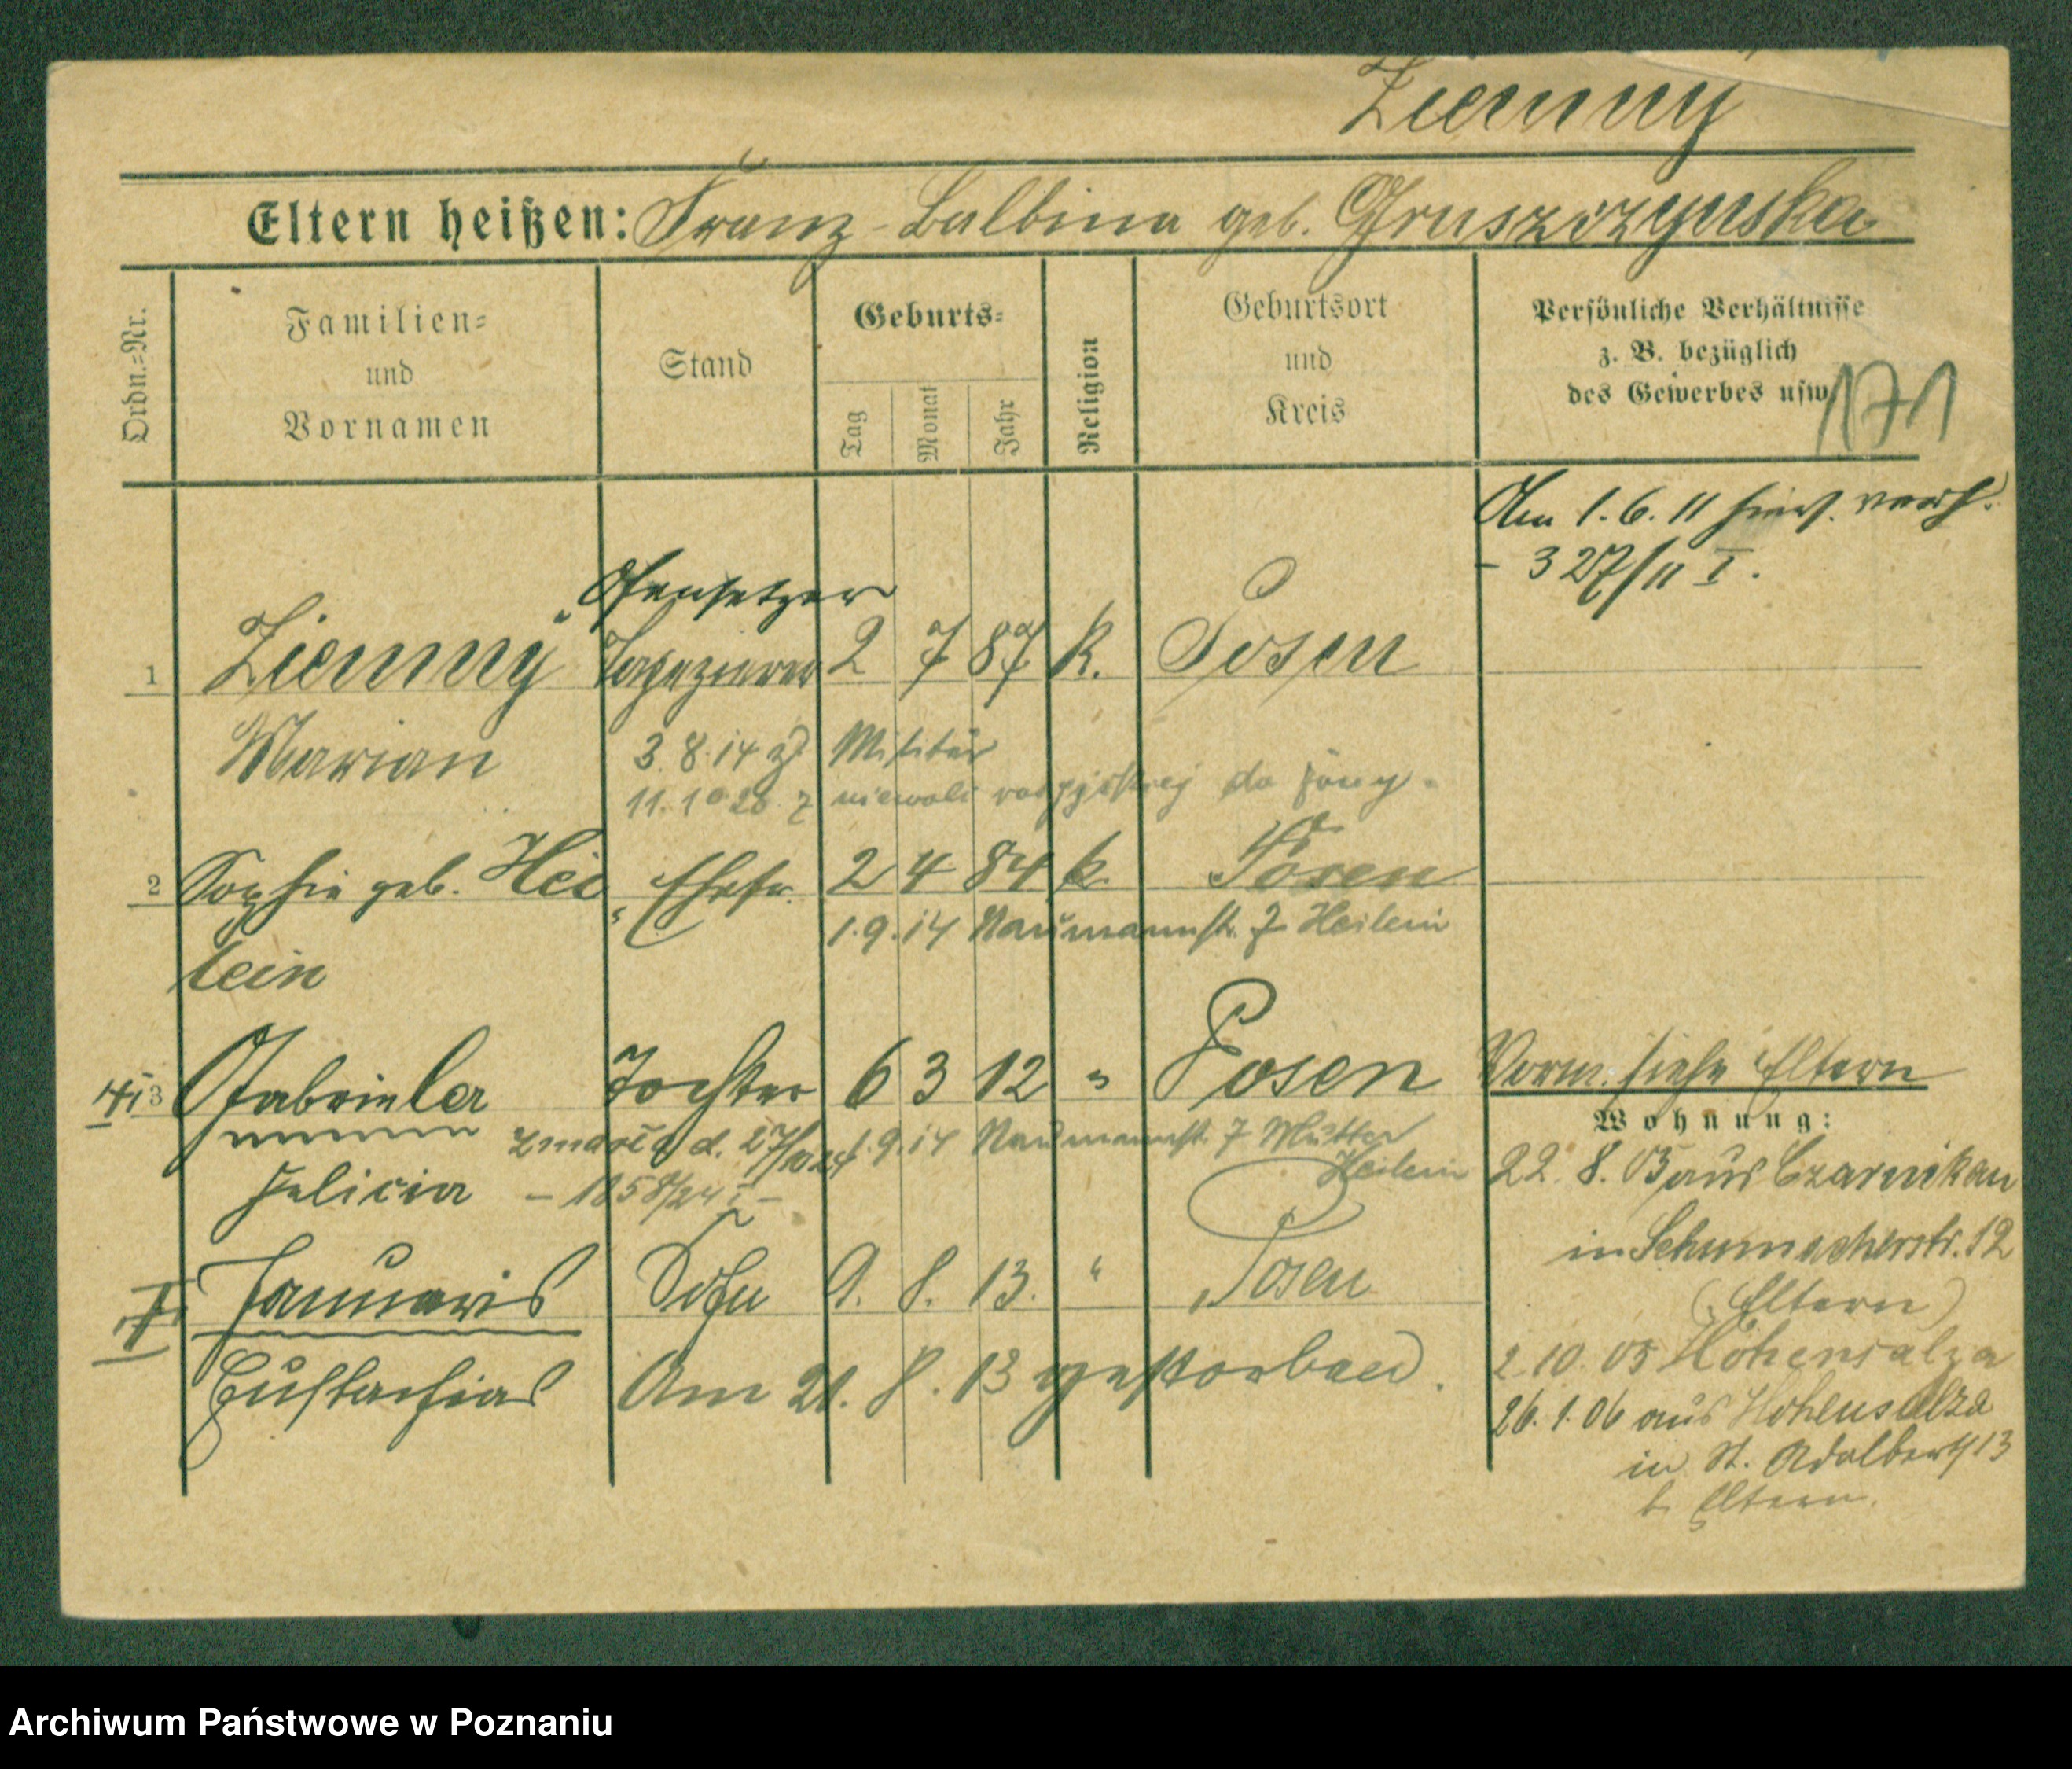 Ziemny
Eltern heißen: Franz - Balbina geb. Gruszczynska
Ordn.-Nr.
Familien- und Vornamen
Stand
Geburts-
Tag
Monat
Jahr
Religion
Geburtsort und Kreis
Persönliche Verhältnisse
z. B. bezüglich
des Gewerbes usw.
171
Am 1. 6. 11 hier verh.
- 327/11 I.
Ofensetzer
1 Ziemny Tapezierer 2 7 87 k. Posen
Marian 3. 8. 14 z. Militär
niewoli rosyjskiej do żony.
2 Sophie geb. Hei Ehefr. 2 4 84 k. Posen
1. 9. 14 Naumannstr. 7 Heilein
lein
3 Gabriela Tochter 6 3 12 " Posen
Vorm. siehe Eltern
Wohnung:
zmarła d. 27/10 24 1. 9. 14 Naumannstr. 7 Mutter
Heilein
Felicia - 1858/24 I -
22. 8. 05 aus Czarnikau
in Schumacherstr. 12
(Eltern)
Januaris Sohn 9. 8. 13. " Posen
Eustachius Am 21. 8. 13 gestorben.
2. 10. 05 Hohensalza
26. 1. 06 aus Hohensalza
in St. Adalbert 13
b. Eltern.
Archiwum Państwowe w Poznaniu